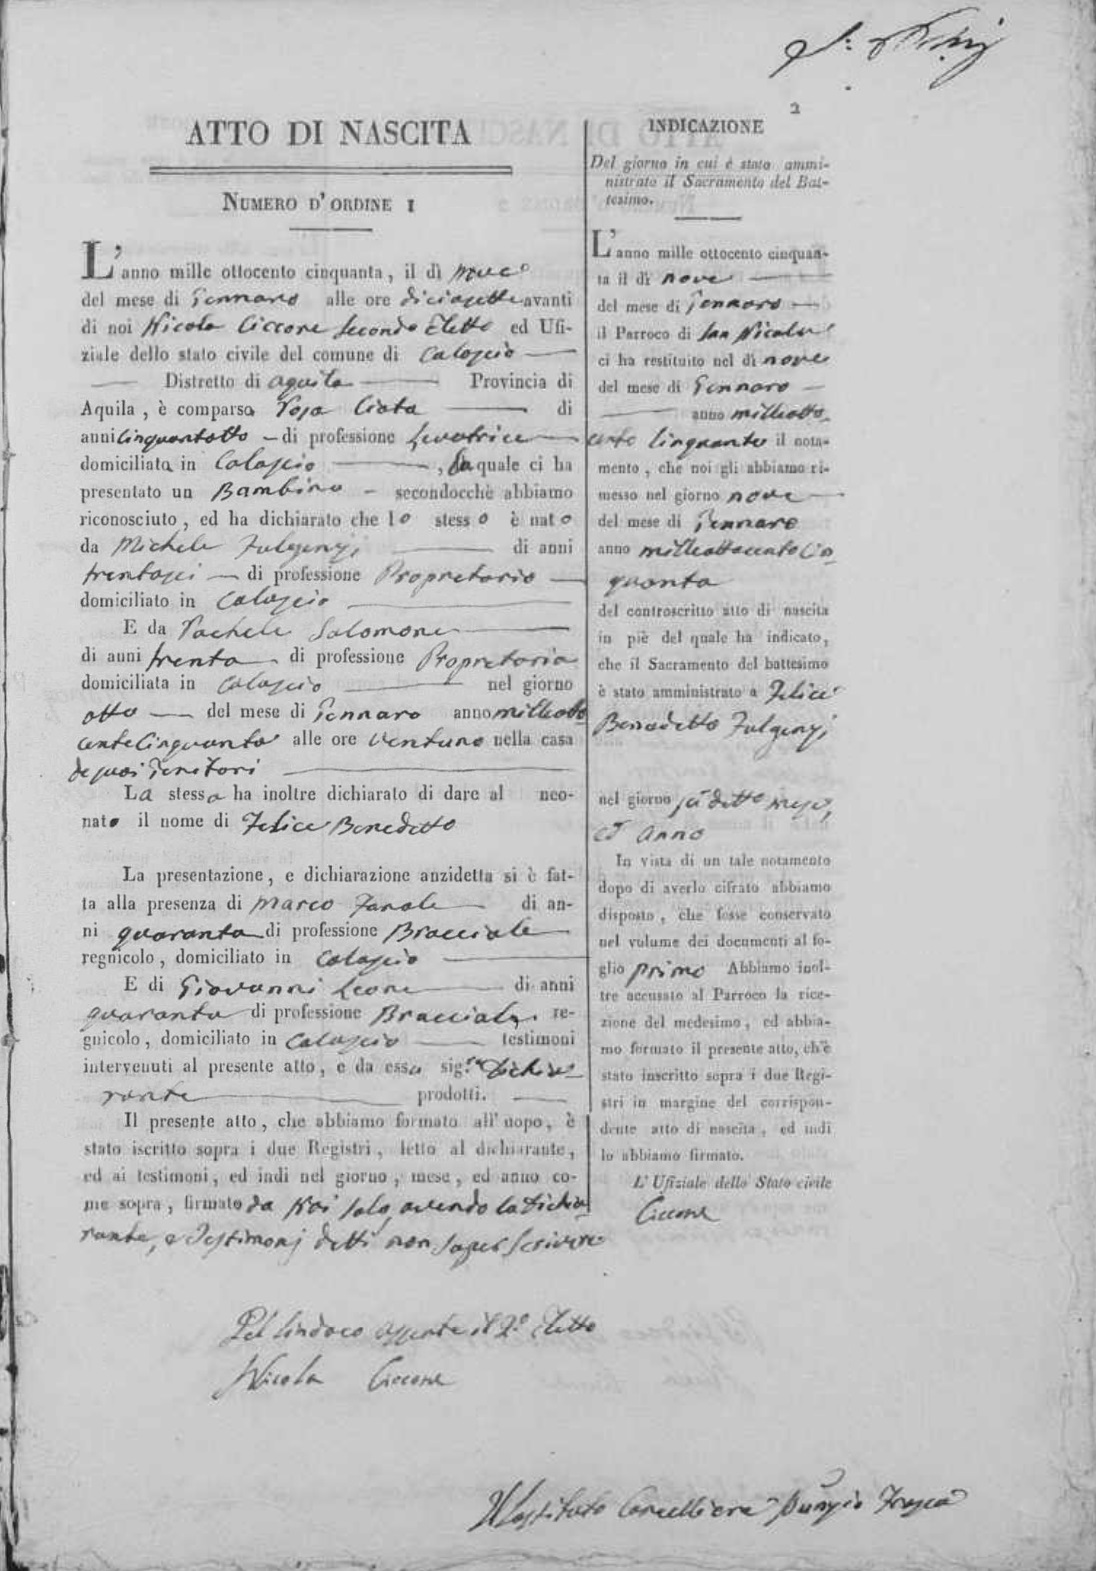 2
ATTO DI NASCITA
NUMERO D'ORDINE 1
L'anno mille ottocento cinquanta, il dì nove
del mese di Gennaro alle ore diciasette avanti
di noi Nicola Ciccone Secondo Eletto ed Ufi-
ziale dello stato civile del comune di Calascio
Distretto di Aquila Provincia di
Aquila, è comparsa Rosa Ciata di
anni Cinquantotto di professione Levatrice
domiciliata in Calascio, la quale ci ha
presentato un Bambino secondocchè abbiamo
riconosciuto, ed ha dichiarato che lo stesso è nato
da Michele Fulgenzj di anni
trentasei di professione Propretario
domiciliato in Calascio
E da Rachele Salomone
di anni trenta di professione Propretaria
domiciliata in Calascio nel giorno
otto del mese di Gennaro anno milleotto
cento Cinquanta alle ore ventuno nella casa
de suoi Genitori
La stessa ha inoltre dichiarato di dare al neo-
nato il nome di Felice Benedetto
La presentazione, e dichiarazione anzidetta si è fat-
ta alla presenza di Marco Fanale di an-
ni quaranta di professione Bracciale
regnicolo, domiciliato in Calascio
E di Giovanni Leone di anni
quaranta di professione Bracciale re-
gnicolo, domiciliato in Calascio testimoni
intervenuti al presente atto, e da essa sig.ra Dichia-
rante prodotti.
Il presente atto, che abbiamo formato all'uopo, è
stato iscritto sopra i due Registri, letto al dichiarante,
ed ai testimoni, ed indi nel giorno, mese, ed anno co-
me sopra, firmato da Noi solo, avendo la Dichia-
rante, e Testimonj detti non saper Scrivere
Pel Sindaco assente il 2.º Eletto
Nicola Ciccone
INDICAZIONE
Del giorno in cui è stato ammi-
nistrato il Sacramento del Bat-
tesimo.
L'anno mille ottocento cinquan-
ta il dì nove
del mese di Gennaro
il Parroco di San Nicola
ci ha restituito nel dì nove
del mese di Gennaro
anno milleotto
cento Cinquanta il nota-
mento, che noi gli abbiamo ri-
messo nel giorno nove
del mese di Gennaro
anno milleottocento Cin
quanta
del controscritto atto di nascita
in piè del quale ha indicato,
che il Sacramento del battesimo
è stato amministrato a Felice
Benedetto Fulgenzj
nel giorno sudetto mese,
ed anno
In vista di un tale notamento
dopo di averlo cifrato abbiamo
disposto, che fosse conservato
nel volume dei documenti al fo-
glio primo Abbiamo inol-
tre accusato al Parroco la rice-
zione del medesimo, ed abbia-
mo formato il presente atto, ch'è
stato inscritto sopra i due Regi-
stri in margine del corrispon-
dente atto di nascita, ed indi
lo abbiamo firmato.
L'Ufiziale dello Stato civile
Ciccone
Il Sostituto Cancelliere